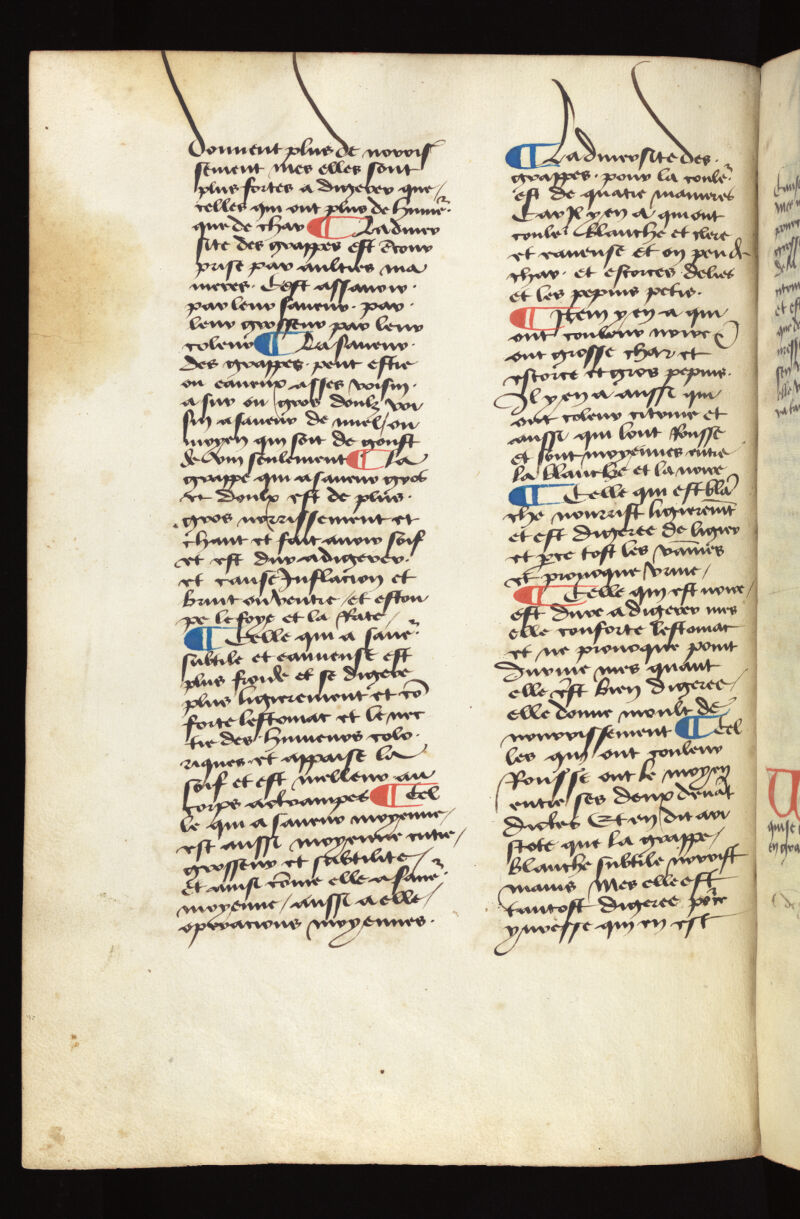 Donnent plus de nourris
sement mes elles sont
plus fortes a digerer que
celles qui ont plus de humeʳ.
que de char ¶ La diuer
site des grappes est ꝯtour
prise par aultres ma
nieres. Cest assauoir.
par leur saueur. par.
leur grosseur par leur
coleur ¶ La saueur.
des grappes. peut estre
ou eaueux asses voisin.
a sur ou gros doulz voi
sin a saueur de miel / ou
moyen qui soit de goust
de vin seulement ¶ La
grappe qui a saueur gros
et doulx est de plus.
gros norrissement et
chaut et fait auoir soif
et est dur a digerer.
et cause Inflacion et
bruit ou ventre / et estou
pe le foye et la Rate /
¶ Celle qui a saueʳ.
subtile et eaueuse est
plus froide et se digere
plus legierement et cō
forte lestomac et le nec
tie des humeurs colo.
riques. et appaise la
soif et est melleur au
corps actrampes ¶ Cel
le qui a saueur moyenne /
est aussi moyenne entre /
grosseur et subtilite /
Et ainsi cōme elle a saueʳ.
moyenne / aussi a elle /
operacions moyennes.
¶ La diuersite des.
grappes. pour la couleʳ.
est de quatre manieres
Car Il y en a qui ont
couleʳ blanche et clere
et eaueuse et on peu de
char. et escorces delies
et les pepins petis.
¶ Item y en a qui
ont couleur noire
ont grosse char et
escorce et gros pepins.
Il y en a aussi qui
ont coleur citrine et
aussi qui sont Rousse
et sont moyennes entre
la blanche et la noire
¶ Celle qui est blā
che nourrist legieremēt
et est digeree de legier
et ꝑce tost les vaines
et prouoque vrine /
¶ Celle qui est noire /
est dure a digerer mes
elle conforte lestomac
et ne prouoque point
Durine mes quant
elle est bien digeree /
elle donne moult de
nourrissement ¶ Cel
les qui ont couleur
Rousse ont le moyen
entre ses deux deuāt
dictes Et en dit ari
stote que la grappe /
blanche subtile nourist
mains Mes elle est
tantost digeree por ce
yuresse qui en est